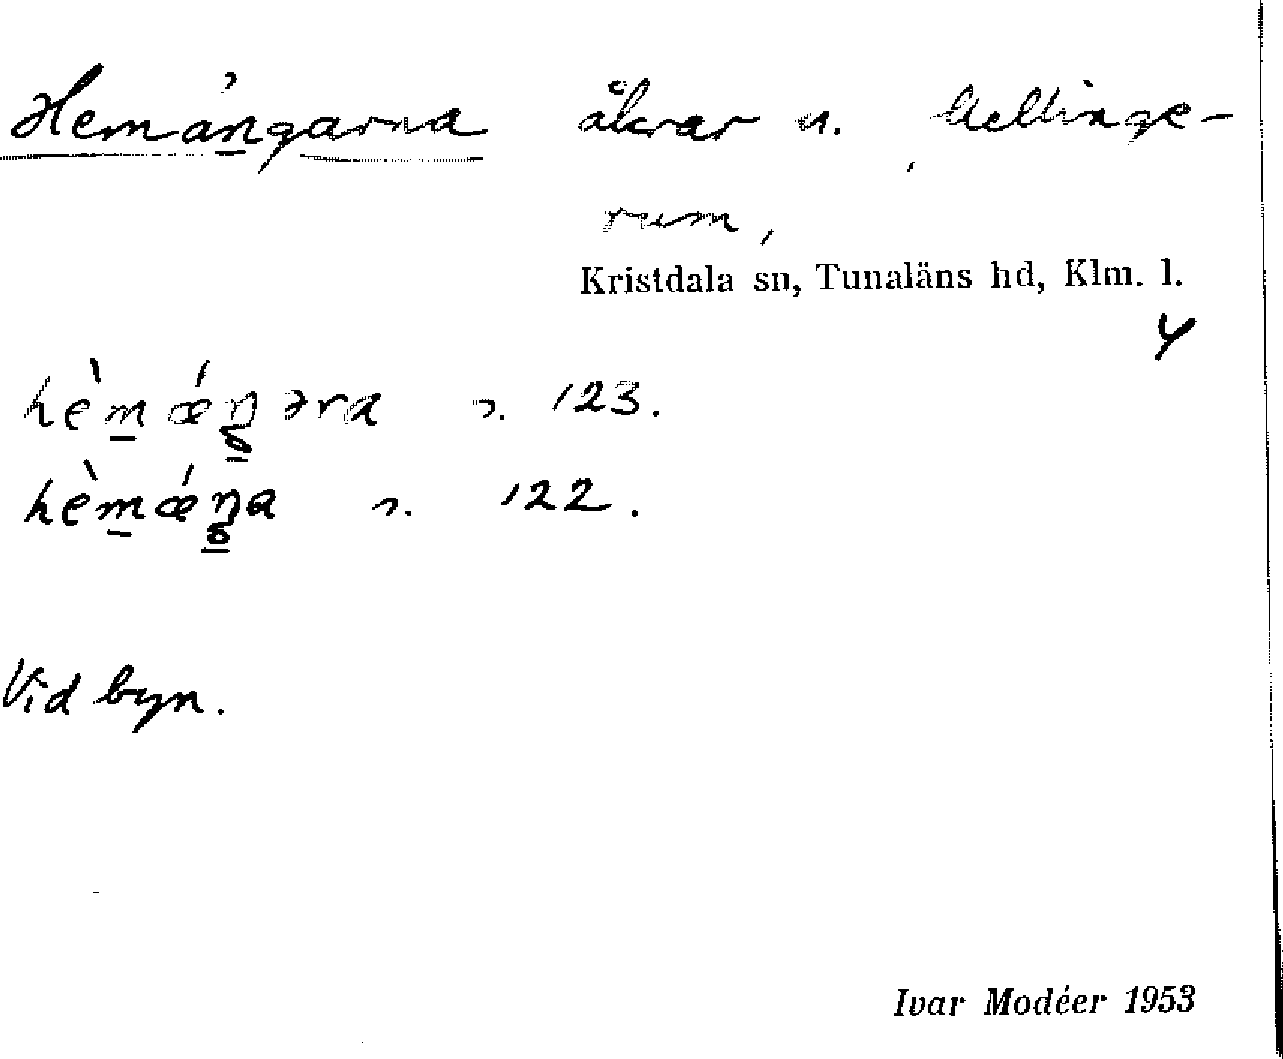 Hemängarna åkrar u. Aellinge-
rum,
Kristdala sn, Tunaläns hd, Klm. l.
4
hèmǽŋəra s. 123.
hèmǽŋa s. 122.
Vid byn.
Ivar Modéer 1953